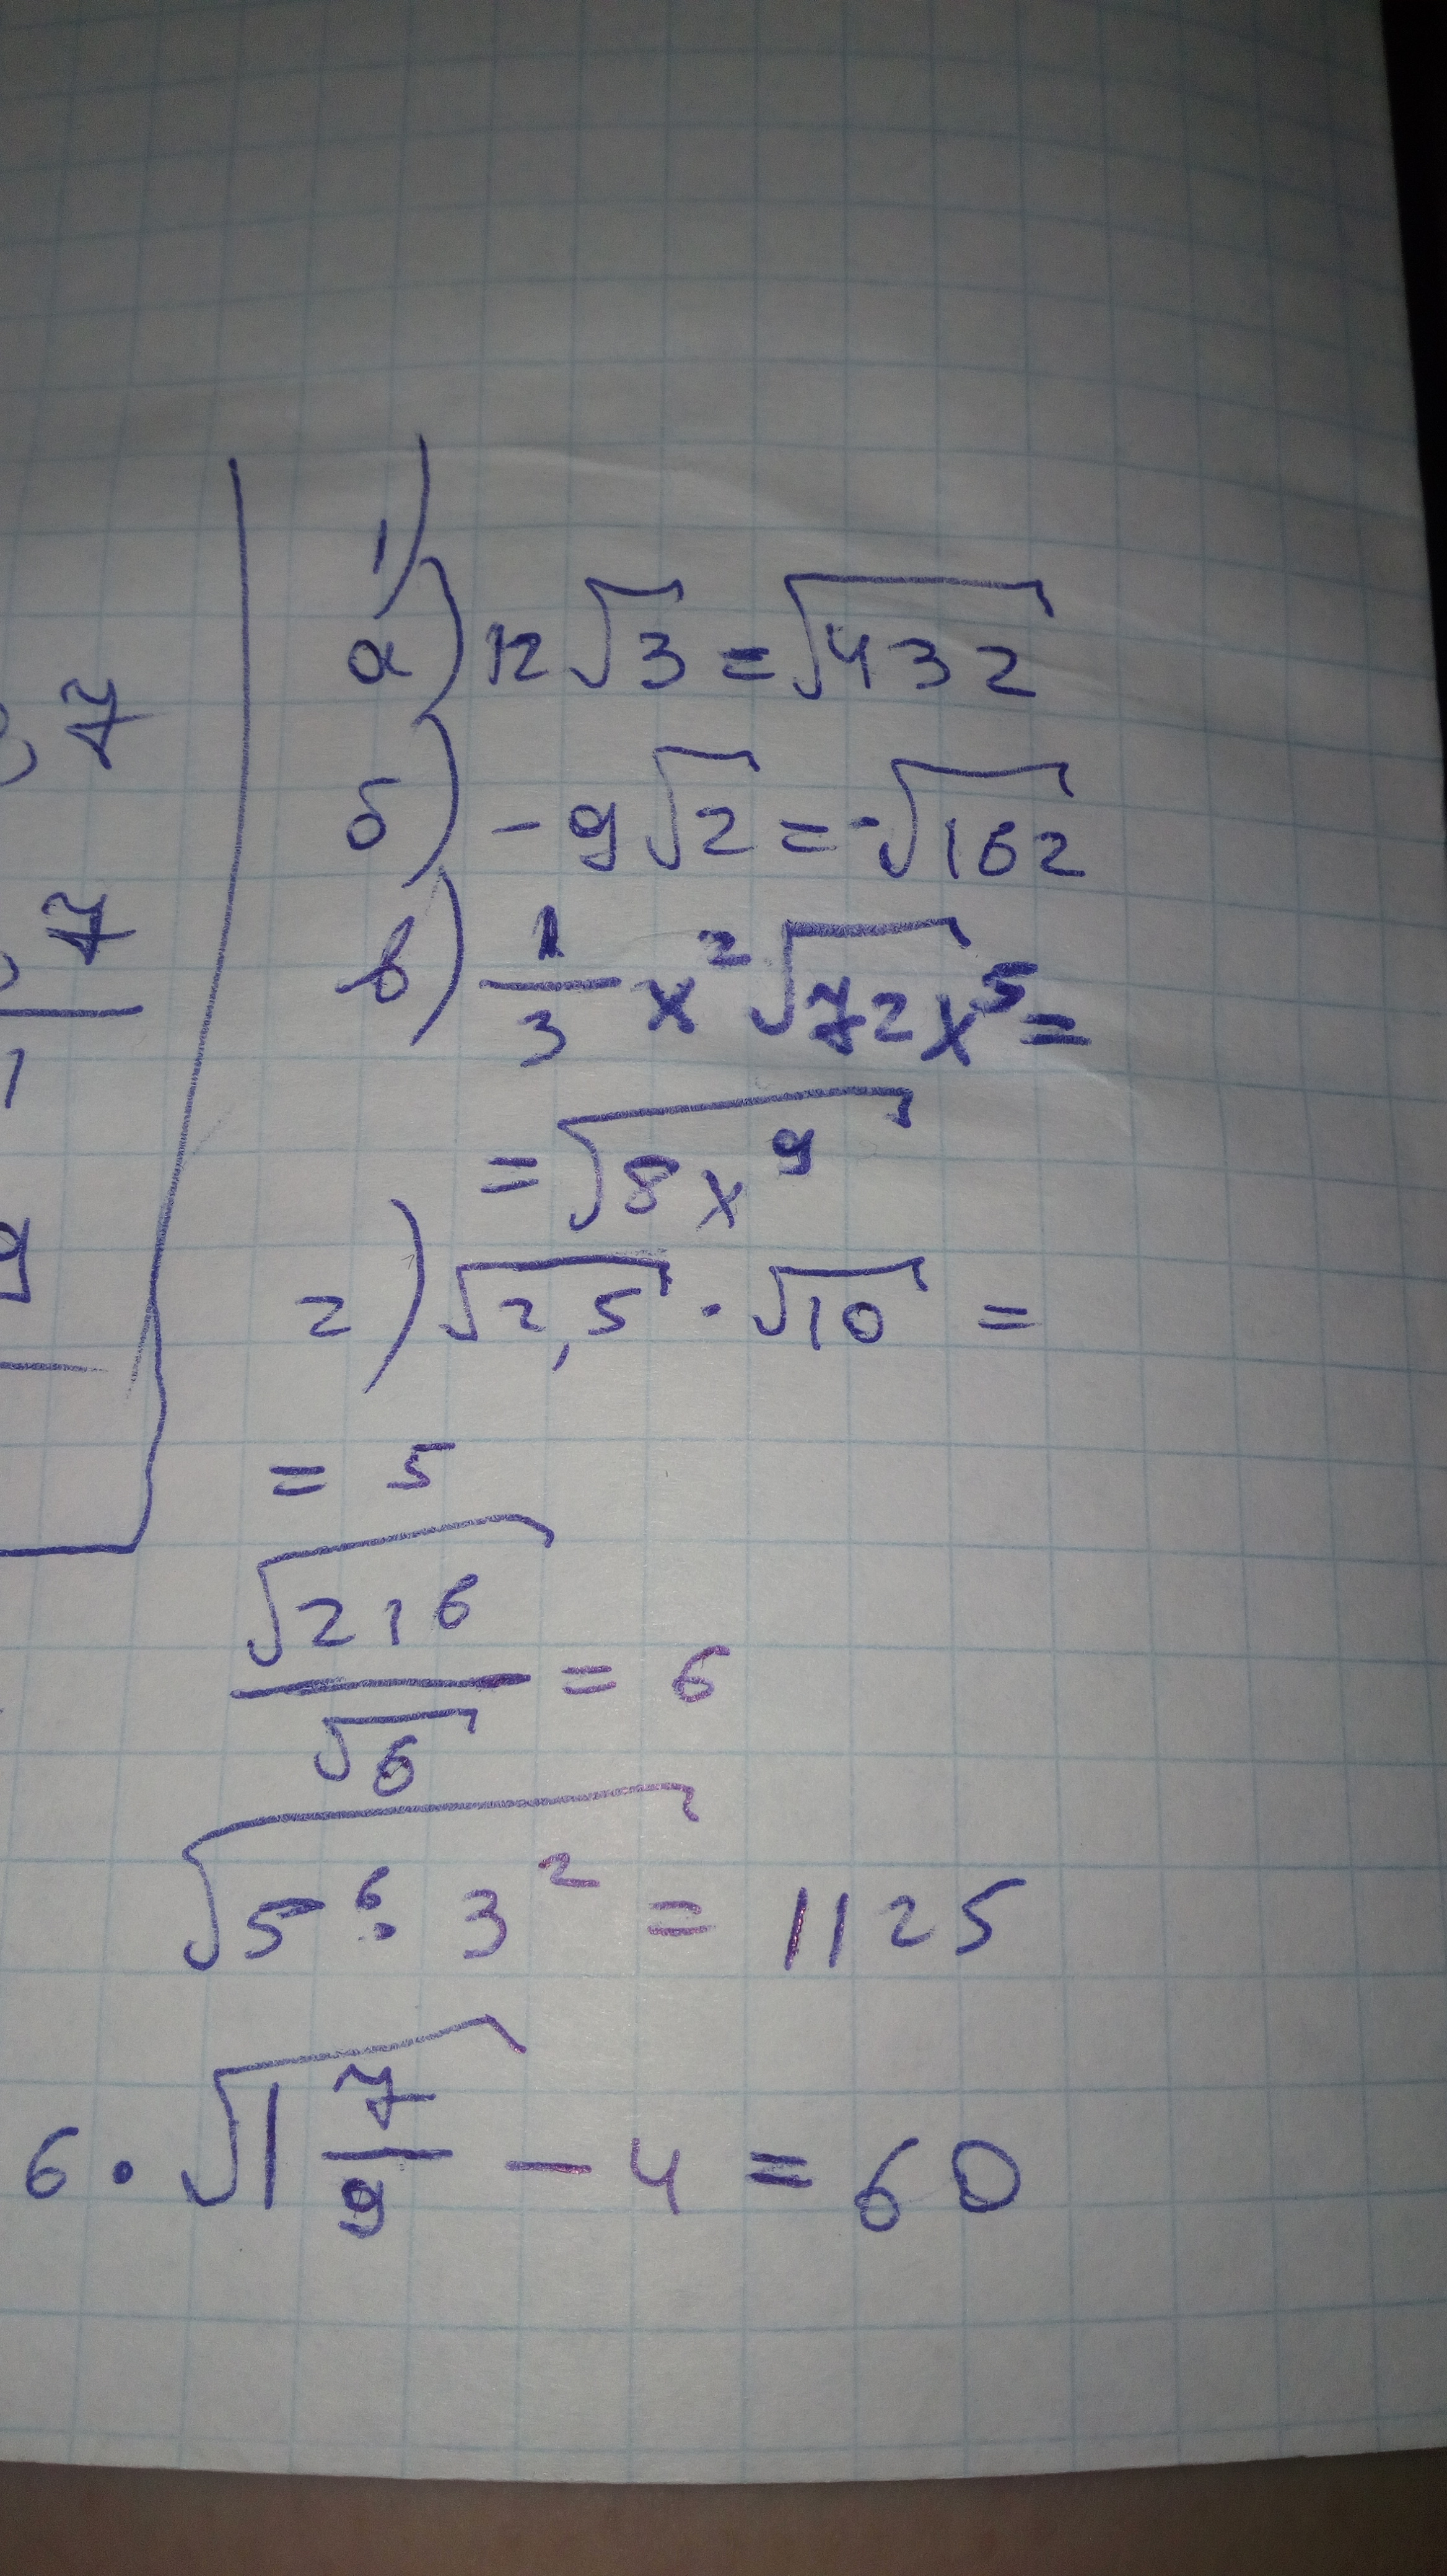 1)
а) 12√3 = √432
б) -9√2 = -√162
в) 1/3 x²√72x⁵ =
= √8x⁹
г) √2,5 · √10 =
= 5
√216/√6 = 6
√5⁶ · 3² = 1125
6 · √1 7/9 - 4 = 60
, 7
, 7
1
9